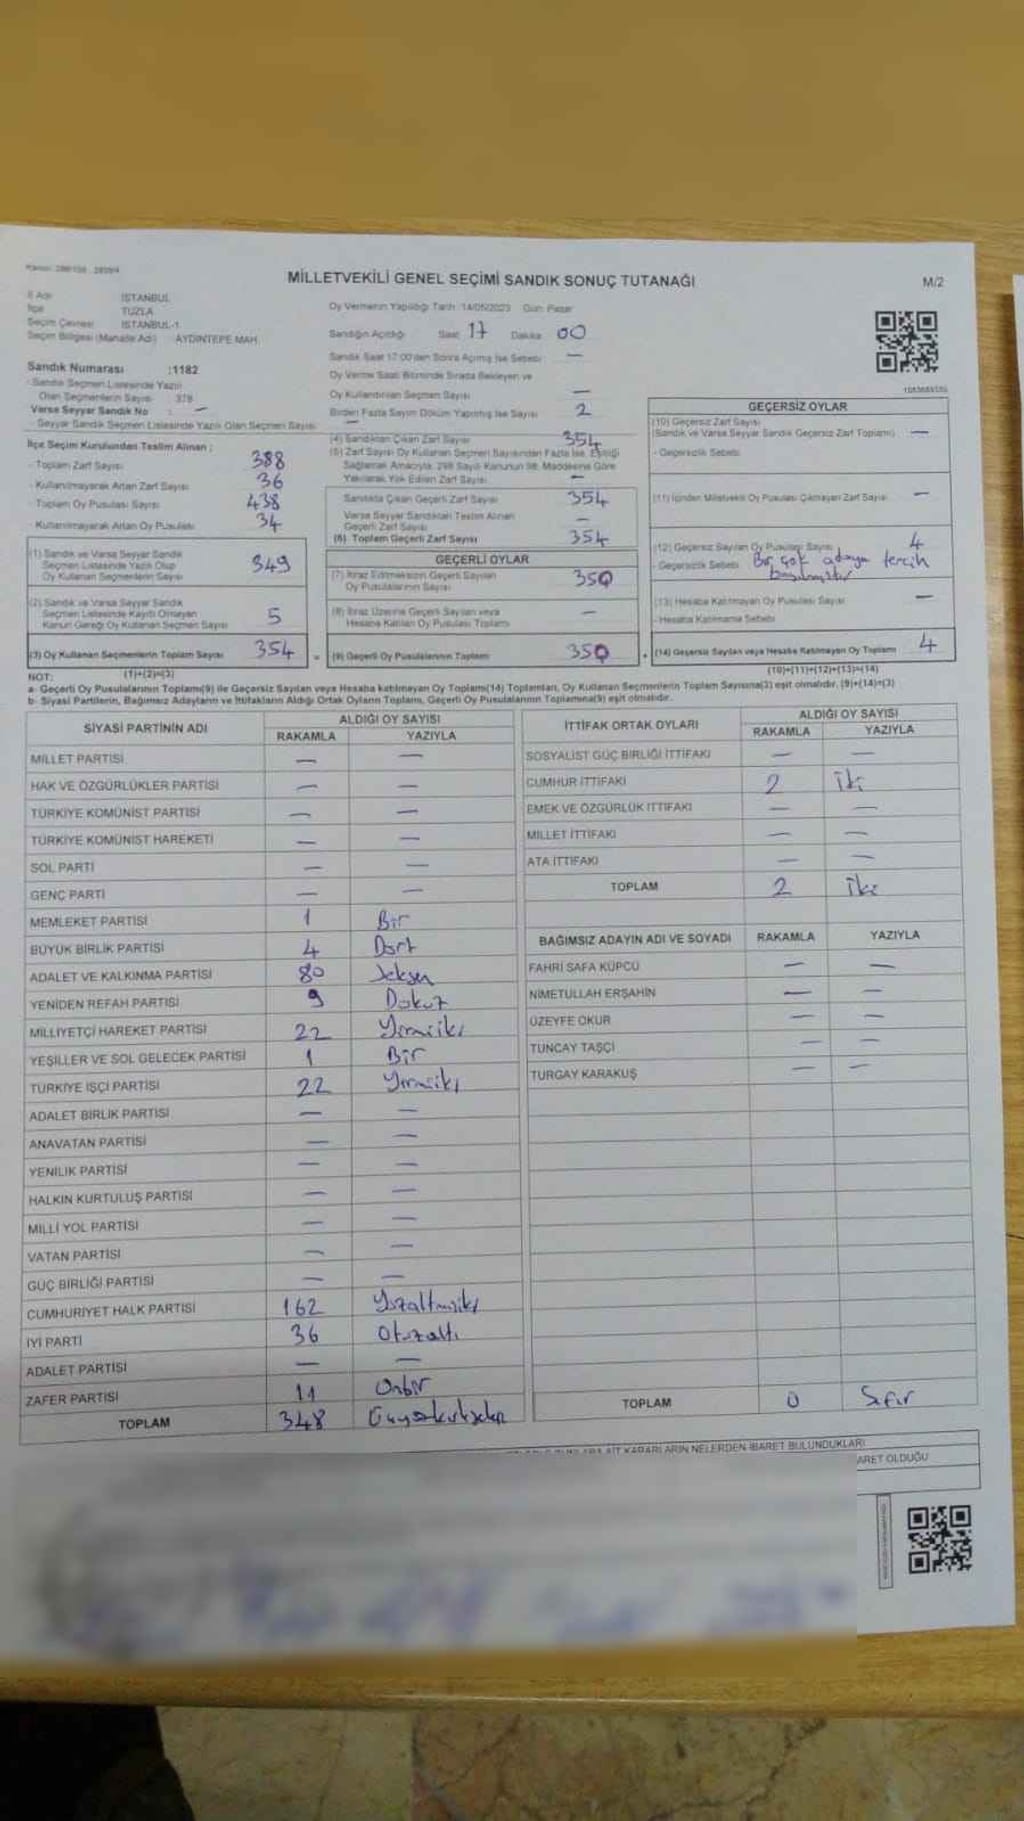 MİLLETVEKİLİ GENEL SEÇİMİ SANDIK SONUÇ TUTANAĞI
M/2
İl Adı İSTANBUL
İlçe TUZLA
Seçim Çevresi İSTANBUL-1
Seçim Bölgesi (Mahalle Adı) AYDINTEPE MAH.
Oy Vermenin Yapıldığı Tarih :14/05/2023 Gün: Pazar
Sandığın Açıldığı Saat 17 Dakika 00
Sandık Saat 17:00'den Sonra Açılmış İse Sebebi —
Oy Verme Saati Bitiminde Sırada Bekleyen ve
Oy Kullandırılan Seçmen Sayısı —
Birden Fazla Sayım Döküm Yapılmış İse Sayısı 2
Sandık Numarası :1182
Sandık Seçmen Listesinde Yazılı
Olan Seçmenlerin Sayısı 378
Varsa Seyyar Sandık No : —
Seyyar Sandık Seçmen Listesinde Yazılı Olan Seçmen Sayısı —
İlçe Seçim Kurulundan Teslim Alınan :
- Toplam Zarf Sayısı 388
- Kullanılmayarak Artan Zarf Sayısı 36
- Toplam Oy Pusulası Sayısı 438
- Kullanılmayarak Artan Oy Pusulası 34
(1) Sandık ve Varsa Seyyar Sandık
Seçmen Listesinde Yazılı Olup
Oy Kullanan Seçmenlerin Sayısı 349
(2) Sandık ve Varsa Seyyar Sandık
Seçmen Listesinde Kayıtlı Olmayan
Kanun Gereği Oy Kullanan Seçmen Sayısı 5
(3) Oy Kullanan Seçmenlerin Toplam Sayısı 354
(1)+(2)=(3)
(4) Sandıktan Çıkan Zarf Sayısı 354
(5) Zarf Sayısı Oy Kullanan Seçmen Sayısından Fazla İse, Eşitliği
Sağlamak Amacıyla, 298 Sayılı Kanunun 98. Maddesine Göre
Yakılarak Yok Edilen Zarf Sayısı —
Sandıkta Çıkan Geçerli Zarf Sayısı 354
Varsa Seyyar Sandıktan Teslim Alınan
Geçerli Zarf Sayısı —
(6) Toplam Geçerli Zarf Sayısı 354
GEÇERLİ OYLAR
(7) İtiraz Edilmeksizin Geçerli Sayılan
Oy Pusulalarının Sayısı 350
(8) İtiraz Üzerine Geçerli Sayılan veya
Hesaba Katılan Oy Pusulası Toplamı —
(9) Geçerli Oy Pusulalarının Toplamı 350
GEÇERSİZ OYLAR
(10) Geçersiz Zarf Sayısı
(Sandık ve Varsa Seyyar Sandık Geçersiz Zarf Toplamı) —
- Geçersizlik Sebebi
(11) İçinden Milletvekili Oy Pusulası Çıkmayan Zarf Sayısı —
(12) Geçersiz Sayılan Oy Pusulası Sayısı 4
Geçersizlik Sebebi Bir çok adaya tercih
basılmıştır
(13) Hesaba Katılmayan Oy Pusulası Sayısı —
- Hesaba Katılmama Sebebi
(14) Geçersiz Sayılan veya Hesaba Katılmayan Oy Toplamı 4
(10)+(11)+(12)+(13)=(14)
NOT:
a- Geçerli Oy Pusulalarının Toplamı(9) ile Geçersiz Sayılan veya Hesaba katılmayan Oy Toplamı(14) Toplamları, Oy Kullanan Seçmenlerin Toplam Sayısına(3) eşit olmalıdır. (9)+(14)=(3)
b- Siyasi Partilerin, Bağımsız Adayların ve İttifakların Aldığı Oyların Toplamı, Geçerli Oy Pusulalarının Toplamına(9) eşit olmalıdır.
SİYASİ PARTİNİN ADI ALDIĞI OY SAYISI
RAKAMLA YAZIYLA
MİLLET PARTİSİ — —
HAK VE ÖZGÜRLÜKLER PARTİSİ — —
TÜRKİYE KOMÜNİST PARTİSİ — —
TÜRKİYE KOMÜNİST HAREKETİ — —
SOL PARTİ — —
GENÇ PARTİ — —
MEMLEKET PARTİSİ 1 Bir
BÜYÜK BİRLİK PARTİSİ 4 Dört
ADALET VE KALKINMA PARTİSİ 80 Seksen
YENİDEN REFAH PARTİSİ 9 Dokuz
MİLLİYETÇİ HAREKET PARTİSİ 22 Yirmiiki
YEŞİLLER VE SOL GELECEK PARTİSİ 1 Bir
TÜRKİYE İŞÇİ PARTİSİ 22 Yirmiiki
ADALET BİRLİK PARTİSİ — —
ANAVATAN PARTİSİ — —
YENİLİK PARTİSİ — —
HALKIN KURTULUŞ PARTİSİ — —
MİLLİ YOL PARTİSİ — —
VATAN PARTİSİ — —
GÜÇ BİRLİĞİ PARTİSİ — —
CUMHURİYET HALK PARTİSİ 162 Yüzaltmışiki
İYİ PARTİ 36 Otuzaltı
ADALET PARTİSİ — —
ZAFER PARTİSİ 11 Onbir
TOPLAM 348 Üçyüzkırksekiz
İTTİFAK ORTAK OYLARI ALDIĞI OY SAYISI
RAKAMLA YAZIYLA
SOSYALİST GÜÇ BİRLİĞİ İTTİFAKI — —
CUMHUR İTTİFAKI 2 İki
EMEK VE ÖZGÜRLÜK İTTİFAKI — —
MİLLET İTTİFAKI — —
ATA İTTİFAKI — —
TOPLAM 2 İki
BAĞIMSIZ ADAYIN ADI VE SOYADI RAKAMLA YAZIYLA
FAHRİ SAFA KÜPCÜ — —
NİMETULLAH ERŞAHİN — —
ÜZEYFE OKUR — —
TUNCAY TAŞÇİ — —
TURGAY KARAKUŞ — —
TOPLAM 0 Sıfır
AİT KARARLARIN NELERDEN İBARET BULUNDUKLARI